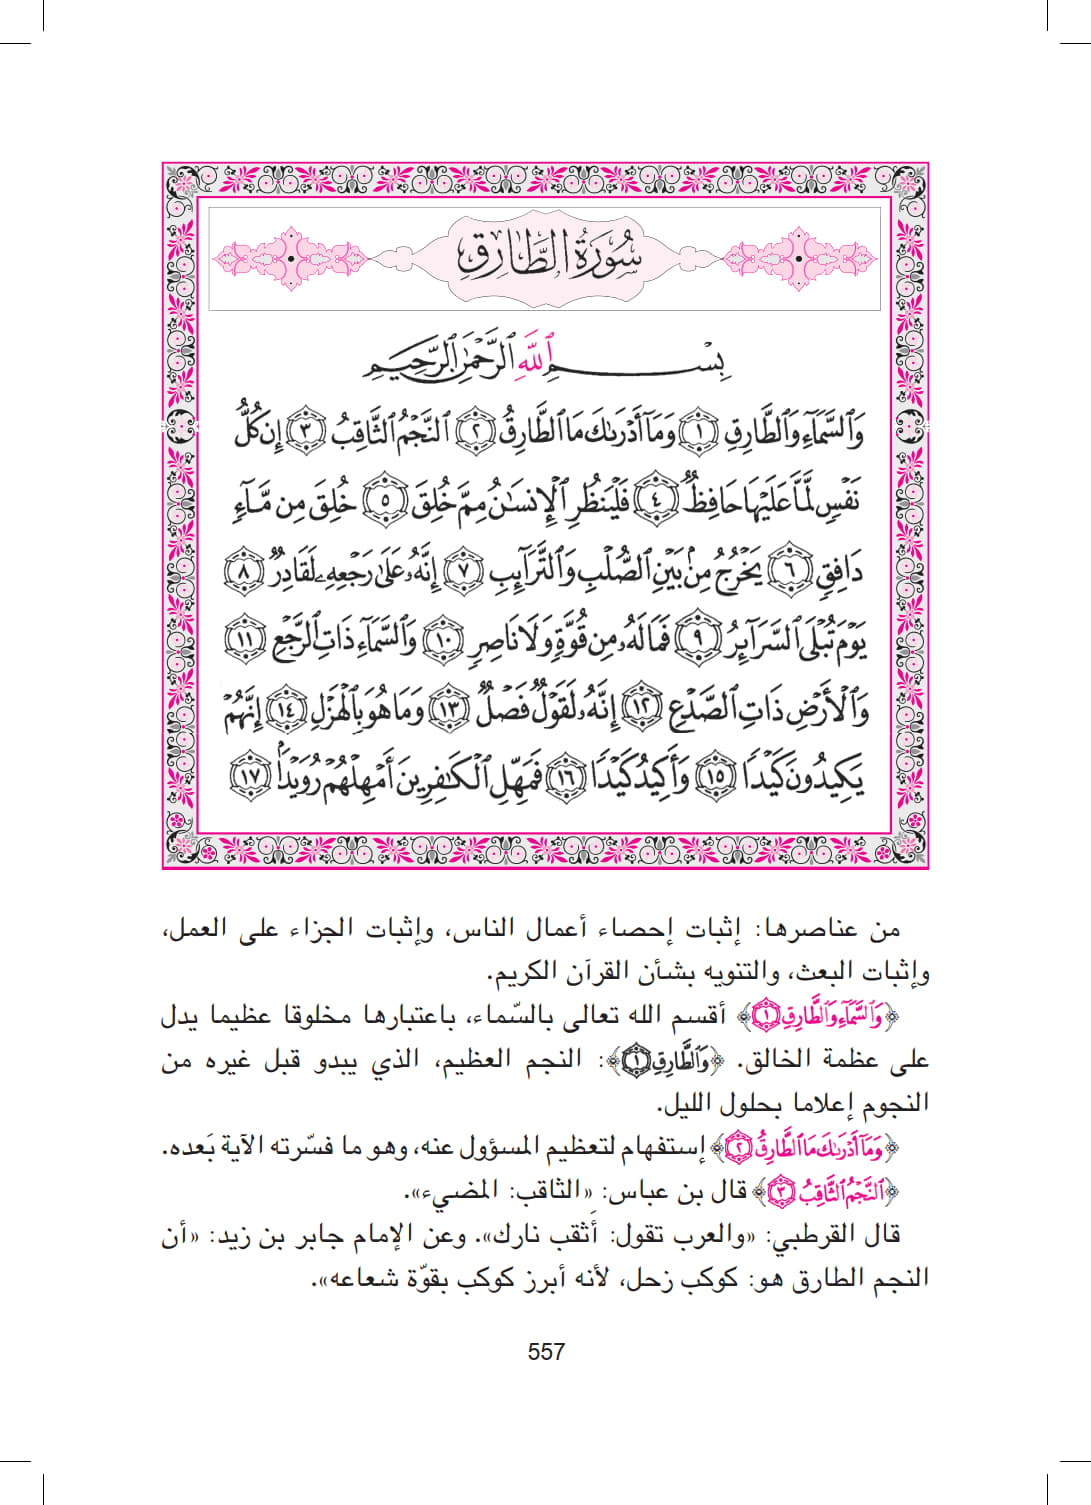 سُورَةُ الطَّارِقِ
بِسْمِ ٱللَّهِ ٱلرَّحْمَٰنِ ٱلرَّحِيمِ
وَٱلسَّمَآءِ وَٱلطَّارِقِ ١ وَمَآ أَدْرَىٰكَ مَا ٱلطَّارِقُ ٢ ٱلنَّجْمُ ٱلثَّاقِبُ ٣ إِن كُلُّ
نَفْسٍ لَّمَّا عَلَيْهَا حَافِظٌ ٤ فَلْيَنظُرِ ٱلْإِنسَٰنُ مِمَّ خُلِقَ ٥ خُلِقَ مِن مَّآءٍ
دَافِقٍ ٦ يَخْرُجُ مِنۢ بَيْنِ ٱلصُّلْبِ وَٱلتَّرَآئِبِ ٧ إِنَّهُۥ عَلَىٰ رَجْعِهِۦ لَقَادِرٌ ٨
يَوْمَ تُبْلَى ٱلسَّرَآئِرُ ٩ فَمَا لَهُۥ مِن قُوَّةٍ وَلَا نَاصِرٍ ١٠ وَٱلسَّمَآءِ ذَاتِ ٱلرَّجْعِ ١١
وَٱلْأَرْضِ ذَاتِ ٱلصَّدْعِ ١٢ إِنَّهُۥ لَقَوْلٌ فَصْلٌ ١٣ وَمَا هُوَ بِٱلْهَزْلِ ١٤ إِنَّهُمْ
يَكِيدُونَ كَيْدًا ١٥ وَأَكِيدُ كَيْدًا ١٦ فَمَهِّلِ ٱلْكَٰفِرِينَ أَمْهِلْهُمْ رُوَيْدًۢا ١٧
من عناصرها: إثبات إحصاء أعمال الناس، وإثبات الجزاء على العمل،
وإثبات البعث، والتنويه بشأن القرآن الكريم.
﴿وَٱلسَّمَآءِ وَٱلطَّارِقِ ١﴾ أقسم الله تعالى بالسّماء، باعتبارها مخلوقا عظيما يدل
على عظمة الخالق. ﴿وَٱلطَّارِقِ ١﴾: النجم العظيم، الذي يبدو قبل غيره من
النجوم إعلاما بحلول الليل.
﴿وَمَآ أَدْرَىٰكَ مَا ٱلطَّارِقُ ٢﴾ إستفهام لتعظيم المسؤول عنه، وهو ما فسّرته الآية بَعده.
﴿ٱلنَّجْمُ ٱلثَّاقِبُ ٣﴾ قال بن عباس: «الثاقب: المضيء».
قال القرطبي: «والعرب تقول: أَثقِب نارك». وعن الإمام جابر بن زيد: «أن
النجم الطارق هو: كوكب زحل، لأنه أبرز كوكب بقوّة شعاعه».
557